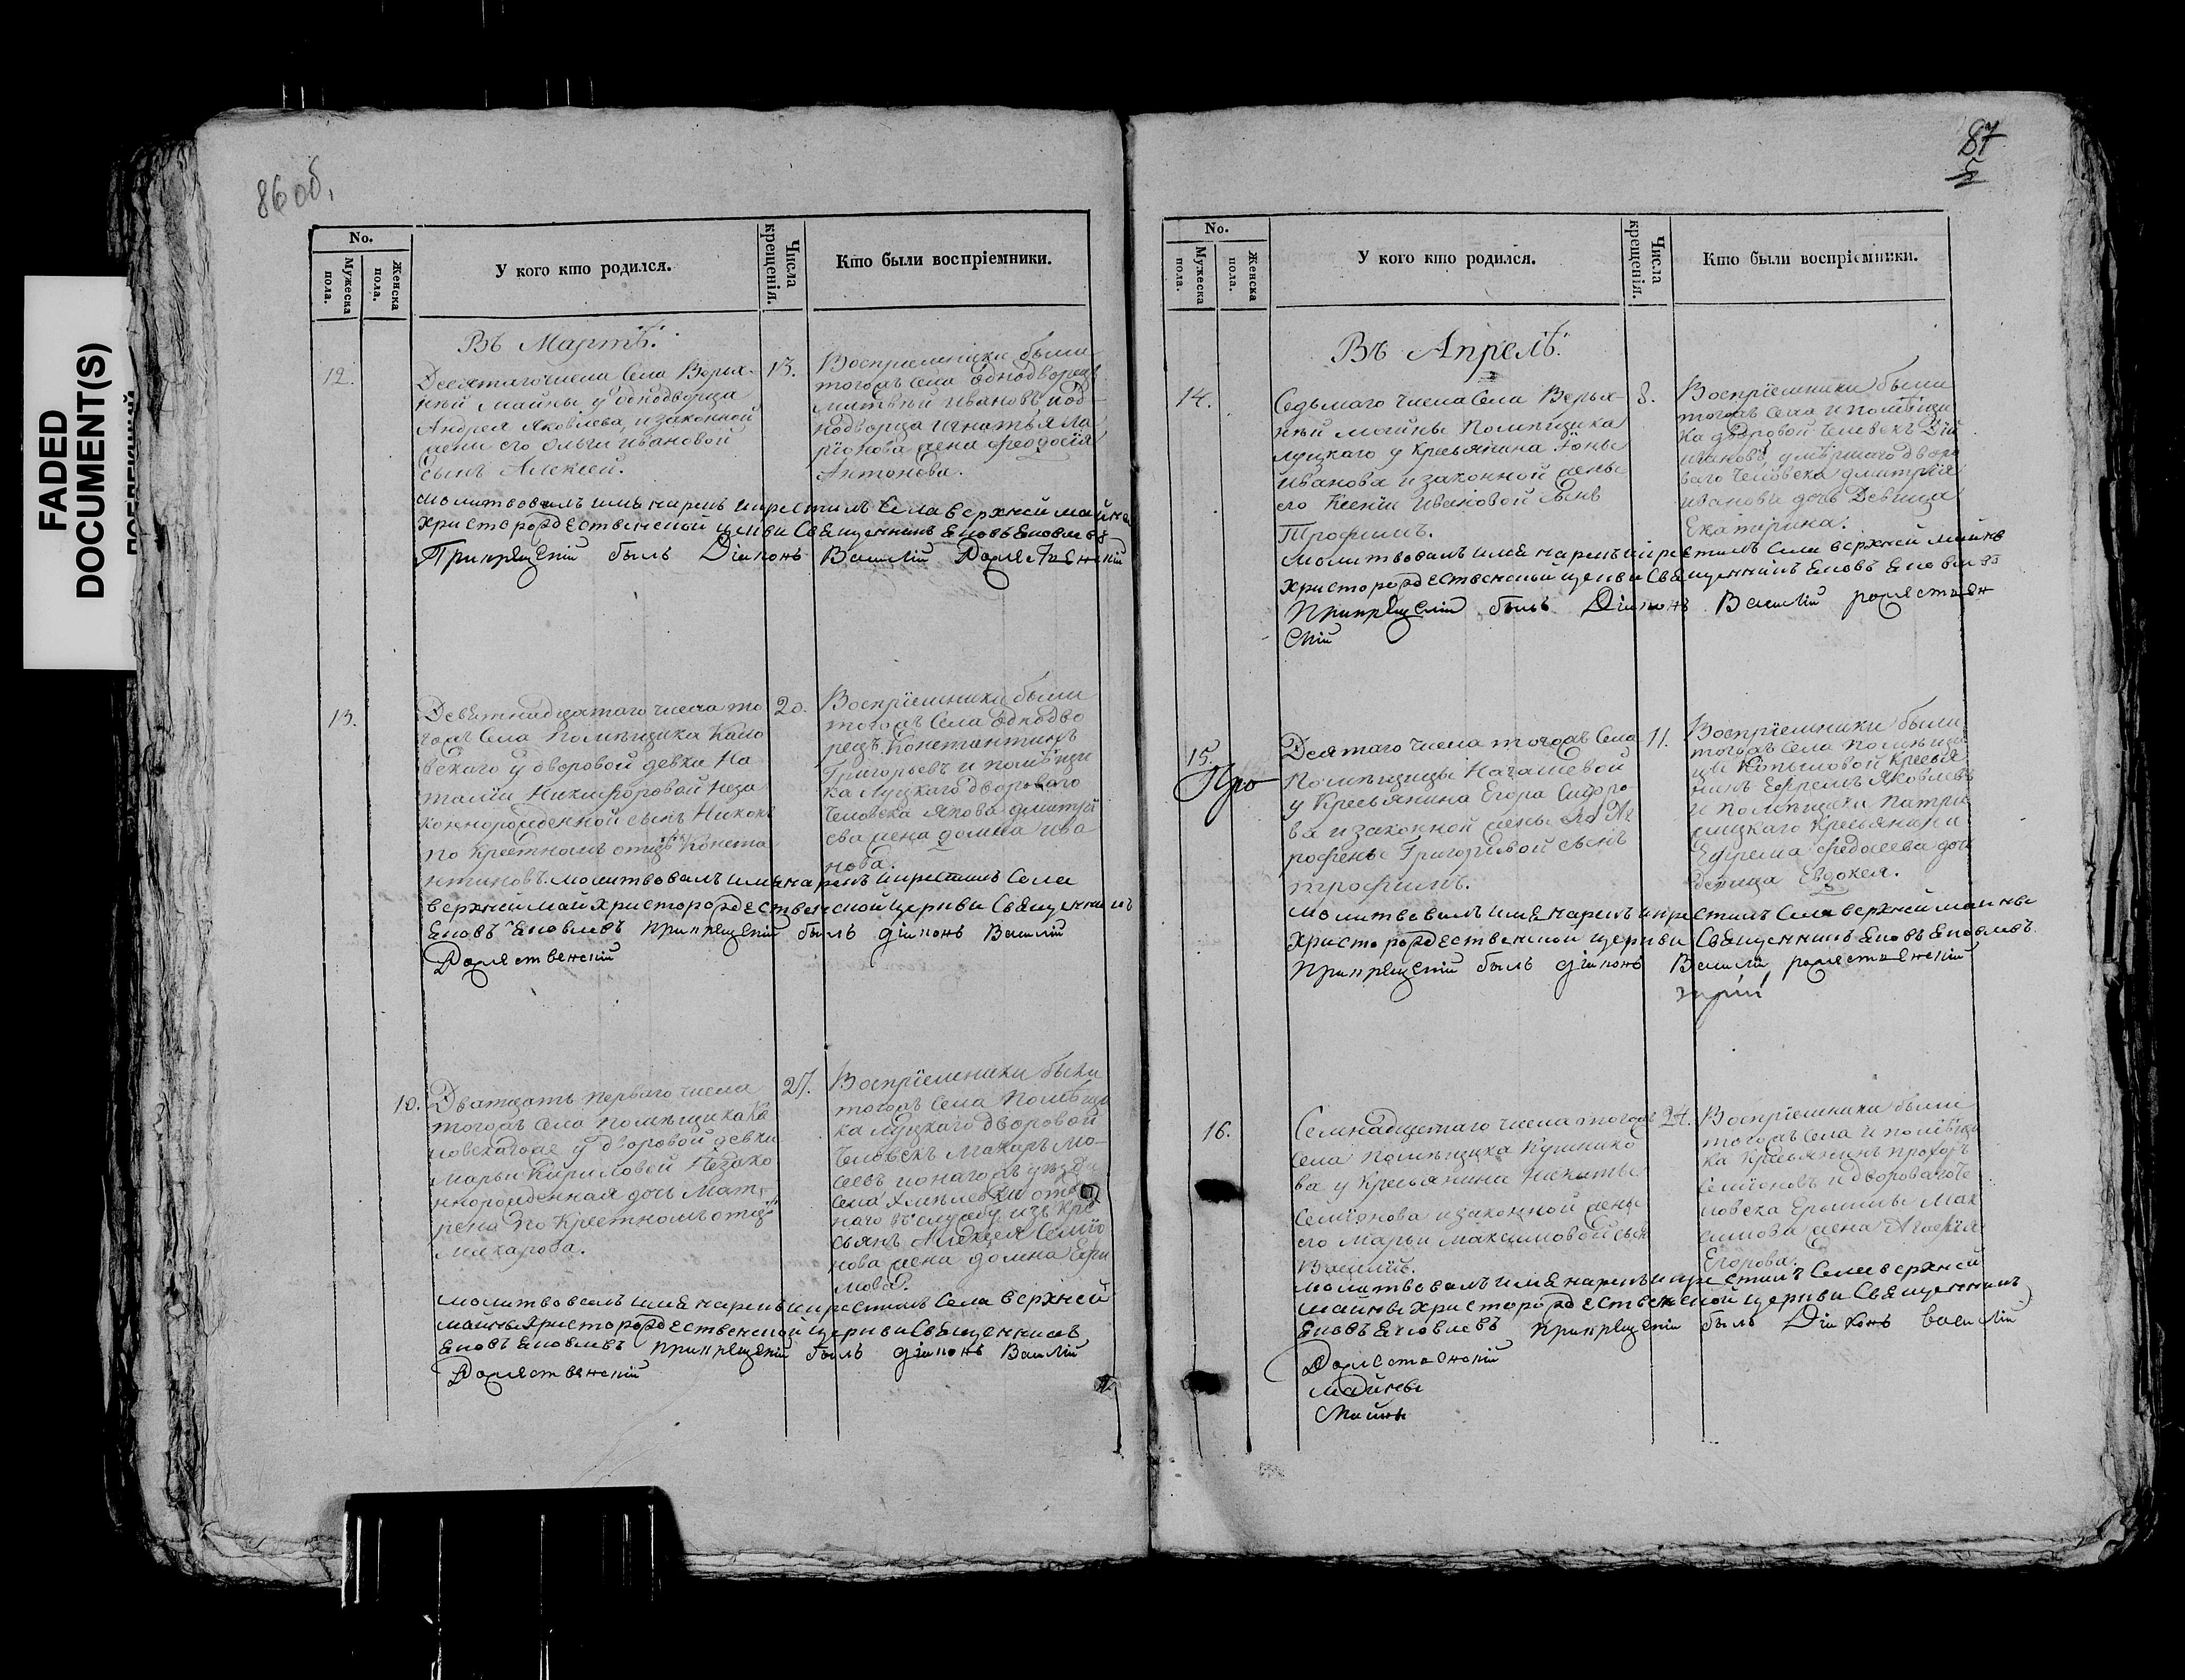 FADED
DOCUMENT(S)
86 об.
No.
Мужеска пола.
Женска пола.
У кого кто родился.
Числа крещенія.
Кто были воспріемники.
Въ Мартѣ.
12.
Десятаго числа Села Верьх-
нѣй Майны у однодворца
Андрея Яковлева, и законной
жены его Ольги Ивановой
сынъ Алексей.
13.
Воспріемники были
тогожъ Села однодворецъ
Матвѣй Ивановъ и од-
нодворца Игнатья Ла
ріонова жена Феодосія
Антонова.
Молитвовалъ имя нарекъ и крестилъ Села верхней майны
христорождественской церкви Священникъ
При крещеніи былъ Діаконъ Василій Рожественскій
13.
Девятнадцатаго числа то
гожъ Села Помѣщика
у дворовой девки На
таліи Никифоровой неза
коннорожденной сынъ Никонъ
по крестномъ отцѣ Конста
нтиновъ.
20.
Воспріемники были
тогожъ Села однодво
рецъ Константинъ
Григорьевъ и помѣщи
ка Луцкаго двороваго
человека Якова Дмитрі
ева жена Домна Ива
нова.
молитвовалъ имя нарекъ и крестилъ Села
верхней май христорождественской церкви Священникъ
при крещеніи былъ діаконъ Василій
Рожественскій
10.
Дватцать перваго числа
тогожъ Села помѣщика Ка
у дворовой девки
Марьи Кириловой незако
ннорожденная дочь Мат-
рена по крестномъ отцѣ
Макарова.
27.
Воспріемники были
тогожъ Села помѣщи
ка Луцкаго дворовой
человекъ Макаръ Мо-
сеевъ
Села
наго въ службу изъ кре
сьянъ Алексея Семіо
нова жена Домна Ефи
мова.
молитвовалъ имя нарекъ и крестилъ Села верхней
майны христорождественской церкви Священникъ
при крещеніи былъ діаконъ Василій
Рожественскій
87
No.
Мужеска пола.
Женска пола.
У кого кто родился.
Числа крещенія.
Кто были воспріемники.
Въ Апрелѣ.
14.
Седьмаго числа Села Верьх-
нѣй Майны Помѣщика
Луцкаго у кресьянина Іоны
Иванова и законной жены
его Ксеніи Ивановой сынъ
Трофимъ.
8.
Воспріемники были
тогожъ Села и помѣщи
ка дворовой человекъ
Ивановъ, умѣршаго дворо
ваго человека Дмитрія
Иванова дочь Девица
Екатерина.
Молитвовалъ имя нарекъ и крестилъ Села верхней майны
христорождественской церкви Священникъ
При крещеніи былъ Діаконъ Василій рожествен
скій
15.
Про
Десятаго числа тогожъ Села
Помѣщицы Наташевой
у кресьянина Егора Сидоро
ва и законной жены его
рофены Григорьевой сынъ
трофимъ.
11.
Воспріемники были
тогожъ Села помѣщи
цы Копыловой кресья
нинъ Ефремъ Яковлевъ
и помѣщика Патри
кресьянина
Ефрема Федосеева дочь
девица Евдокея.
молитвовалъ имя нарекъ и крестилъ Села верхней майны
христорождественской церкви Священникъ
При крещеніи былъ діаконъ Василій рожественскій
16.
Семнадцетаго числа тогожъ
Села помѣщика Кушнико
ва у кресьянина Никиты
Семіонова и законной жены
его Марьи Максимовой сынъ
Василій.
24.
Воспріемники были
тогожъ Села и помѣщи
ка кресьянинъ Прохоръ
Семіоновъ и двороваго че
ловека Ермилы Мак
симова жена Агафія
Егорова.
молитвовалъ имя нарекъ и крестилъ Села верхней
майны христорождественской церкви Священникъ
при крещеніи былъ Діаконъ Василій
Рожественскій
майны
майны